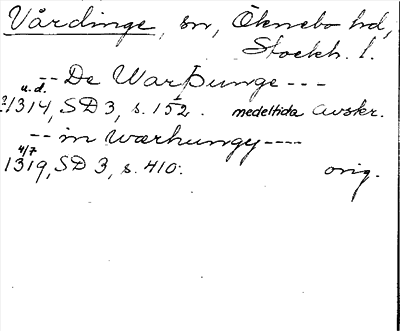 Vårdinge, sn, Öknebo hd,
Stockh. l.
-- De Warþunge ---
u.d.
?1314, SD 3, s. 152. medeltida avskr.
-- in wærhungy ----
4/7
1319, SD 3, s. 410. orig.